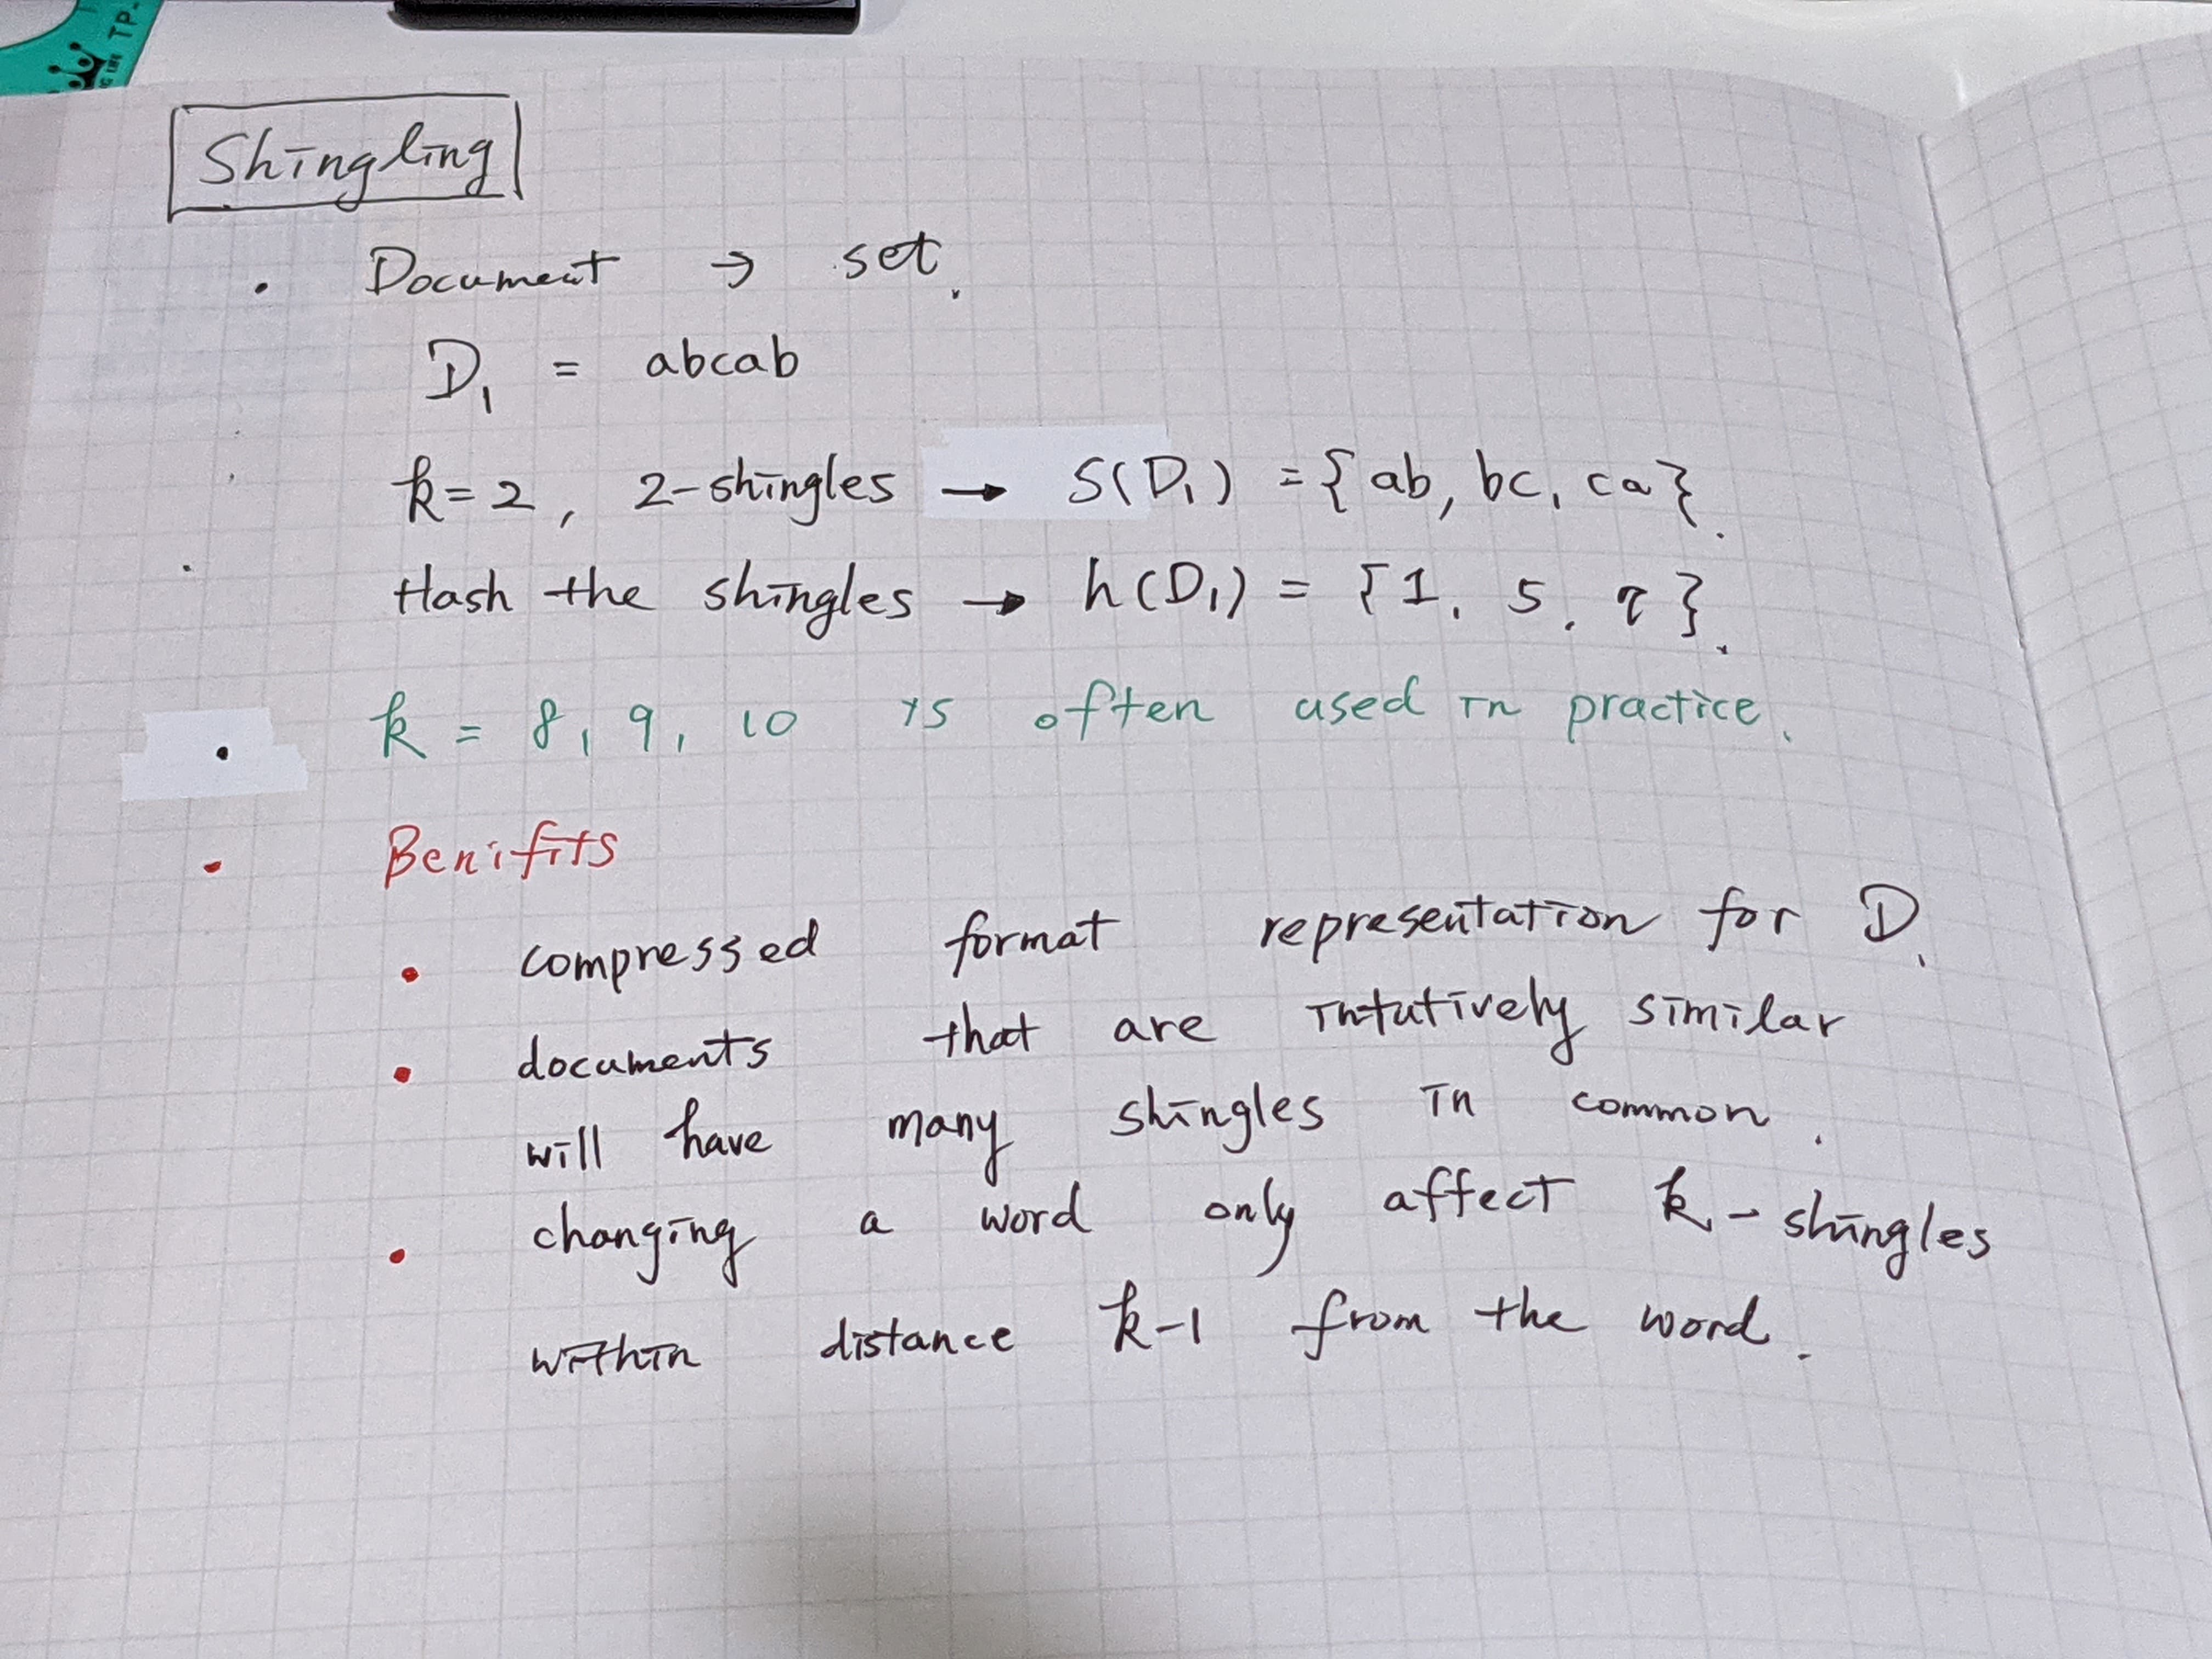 TP-
Shingling
· Document → set.
D₁ = abcab
k=2, 2-shingles → S(D₁) = {ab, bc, ca}.
Hash the shingles → h(D₁) = {1, 5, 7}.
· k = 8, 9, 10 is often used in practice.
· Benifits
· compressed format representation for D.
· documents that are intutively similar
will have many shingles in common.
· changing a word only affect k-shingles
within distance k-1 from the word.